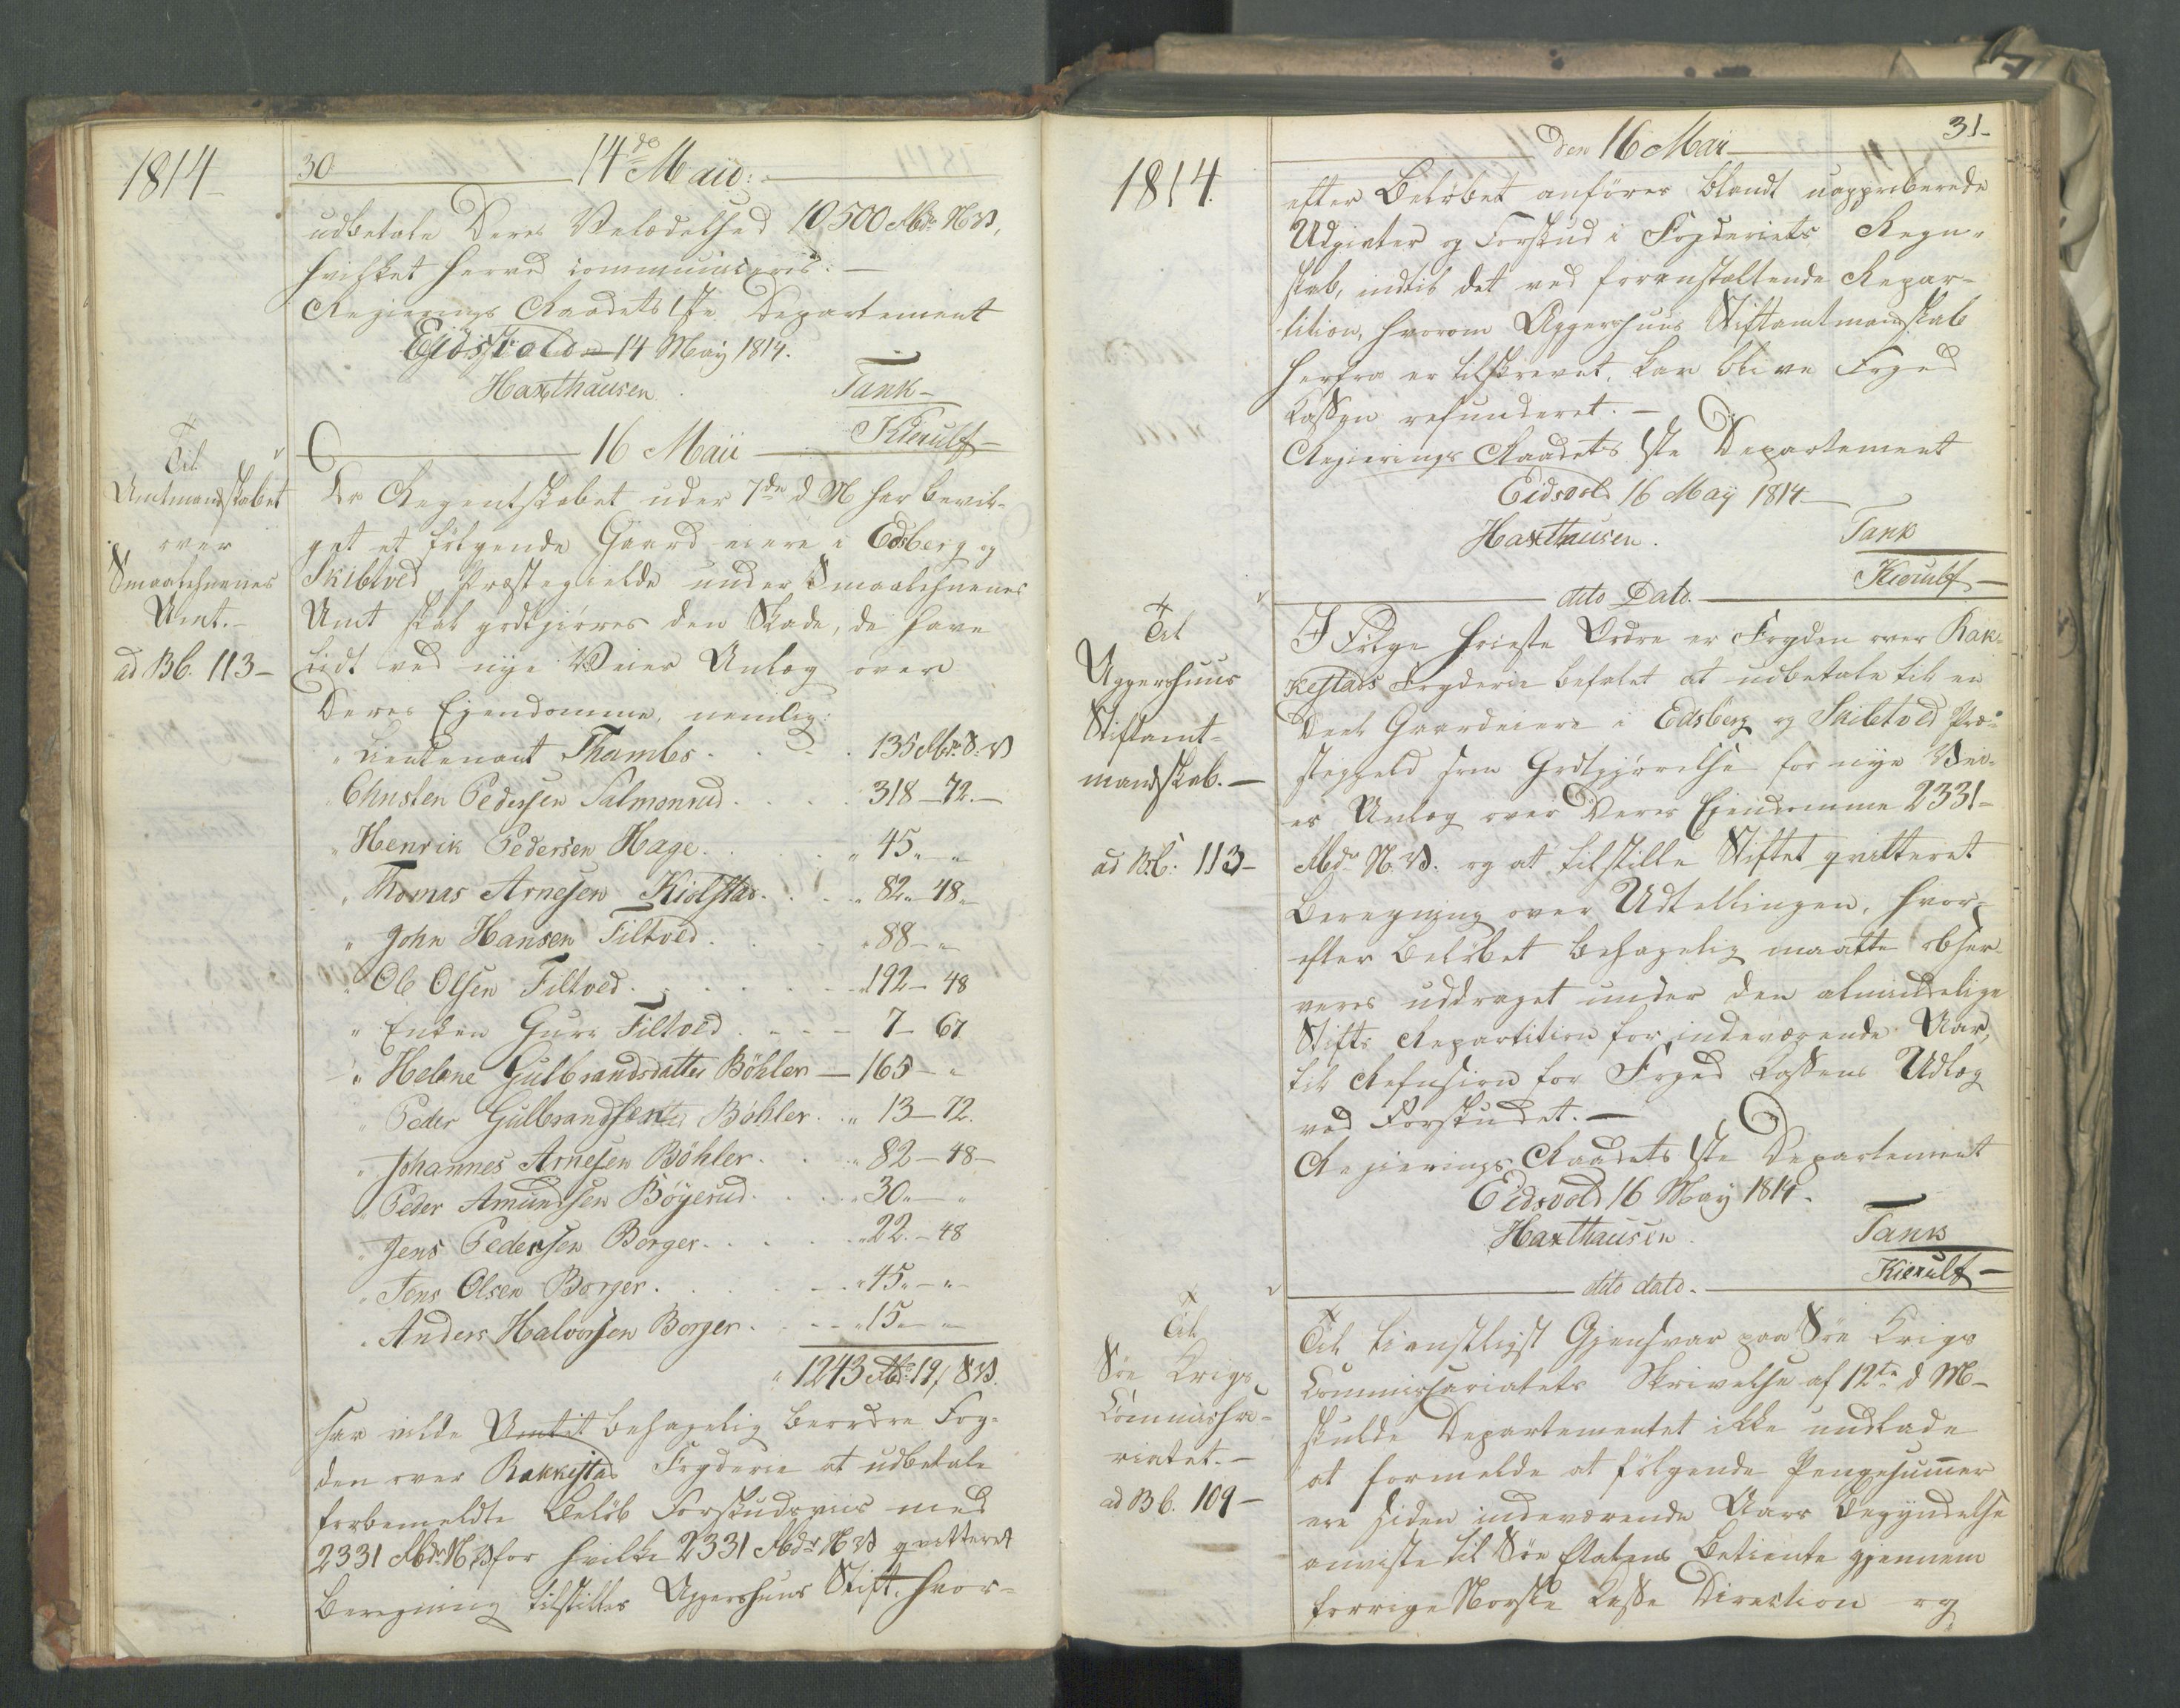 1814
30
14de Maio:
udbetale Deres Velædelhed 10500 Rbdr NV,
hvilket herved communiceres. —
Regierings Raadets 1ste Departement
Eidsvold 14 May 1814.
Haxthausen. Tank —
Kierulf —
16 Maii
Til
Amtmandskabet
over
Smaalehnenes
Amt. —
ad B b. 113 —
Da Regentskabet under 7de d M har bevil-
get at følgende Gaardeiere i Edsberg og
Skibtved Præstegielde under Smaalehnenes
Amt skal godtgiøres den Skade, de have
lidt ved nye Veies Anlæg over
Deres Ejendomme, nemlig:
" Lieutenant Thambs . . . 135 Rbd. S. V
" Christen Pedersen Salmonrud . . . 318 — 72. —
" Henrik Pedersen Hage . . . " 45 " — "
" Thomas Arnesen Kiolstad . . . " 82 " — 48 "
" John Hansen Filtved . . . " 88 — "
" Ole Olsen Filtved . . . " 192 — 48
" Enken Guro Filtved . . . — 7 — 67
" Helene Gulbrandsdatter Böhler — 165 — "
" Peder Gulbrandsen Böhler . . " 13 — 72.
" Johannes Arnesen Böhler . . . " 82 — 48 —
" Peder Amundsen Böyerud . . . " 30 " — "
" Jens Pedersen Borger . . . " 22. — 48
" Jens Olsen Borger . . . " 45 " — " —
" Anders Halvorsen Borger . . . " 15 " — " —
" 1243 Rbd. 19 / SV.
saa vilde Amtet behagelig beordre Fog-
den over Rakkestad Fogderie at udbetale
forbemeldte Beløb Forskudsviis med
2331 Rbdr NV for hvilke 2331 Rbdr NV qvitteret
Beregning tilstilles Aggershuus Stift, hvor-
1814.
den 16 Mai
31 —
efter Beløbet anføres blandt uapproberede
Udgivter og Forskud i Fogderiets Regn-
skab, indtil det ved foranstaltende Repar-
tition, hvorom Aggershuus Stiftamtmandskab
herfra er tilskrevet, kan blive Foged
Cassen refunderet. —
Regierings Raadets 1ste Departement
Eidsvold 16 May 1814
Haxthausen. Tank
Kierulf —
dito Dato.
Til
Aggershuus
Stiftamt-
mandskab. —
ad B.b. 113 —
I Følge høieste Ordre er Fogden over Rak-
kestads Fogderie befalet at udbetale til en
Deel Gaardeiere i Edsberg og Skibtved Præ-
stegjeld som Godtgjørelse for nye Vei-
es Anlæg over Deres Ejendomme 2331 —
Rbdr N. V. og at tilstille Stiftet qvitteret
Beregning over Udtellingen, hvor-
efter Beløbet behagelig maatte obser-
veres uddraget under den almindelige
Stifts Repartition for indeværende Aar,
til Refusion for Foged Cassens Udlæg
ved Forskudet. —
Regierings Raadets 1ste Departement
Eidsvold 16 May 1814.
Haxthausen. Tank
Kierulf —
dito dato.
Til
Søe Krigs
Commissa-
riatet. —
ad B b. 109 —
Til tienstligst Gjensvar paa Søe Krigs
Commissariatets Skrivelse af 12te d M —
skulde Departementet ikke undlade
at formelde at følgende Pengesummer
ere siden indeværende Aars Begyndelse
anviste til Søe Etatens Betiente gjennem
forrige Norske Casse Direction og